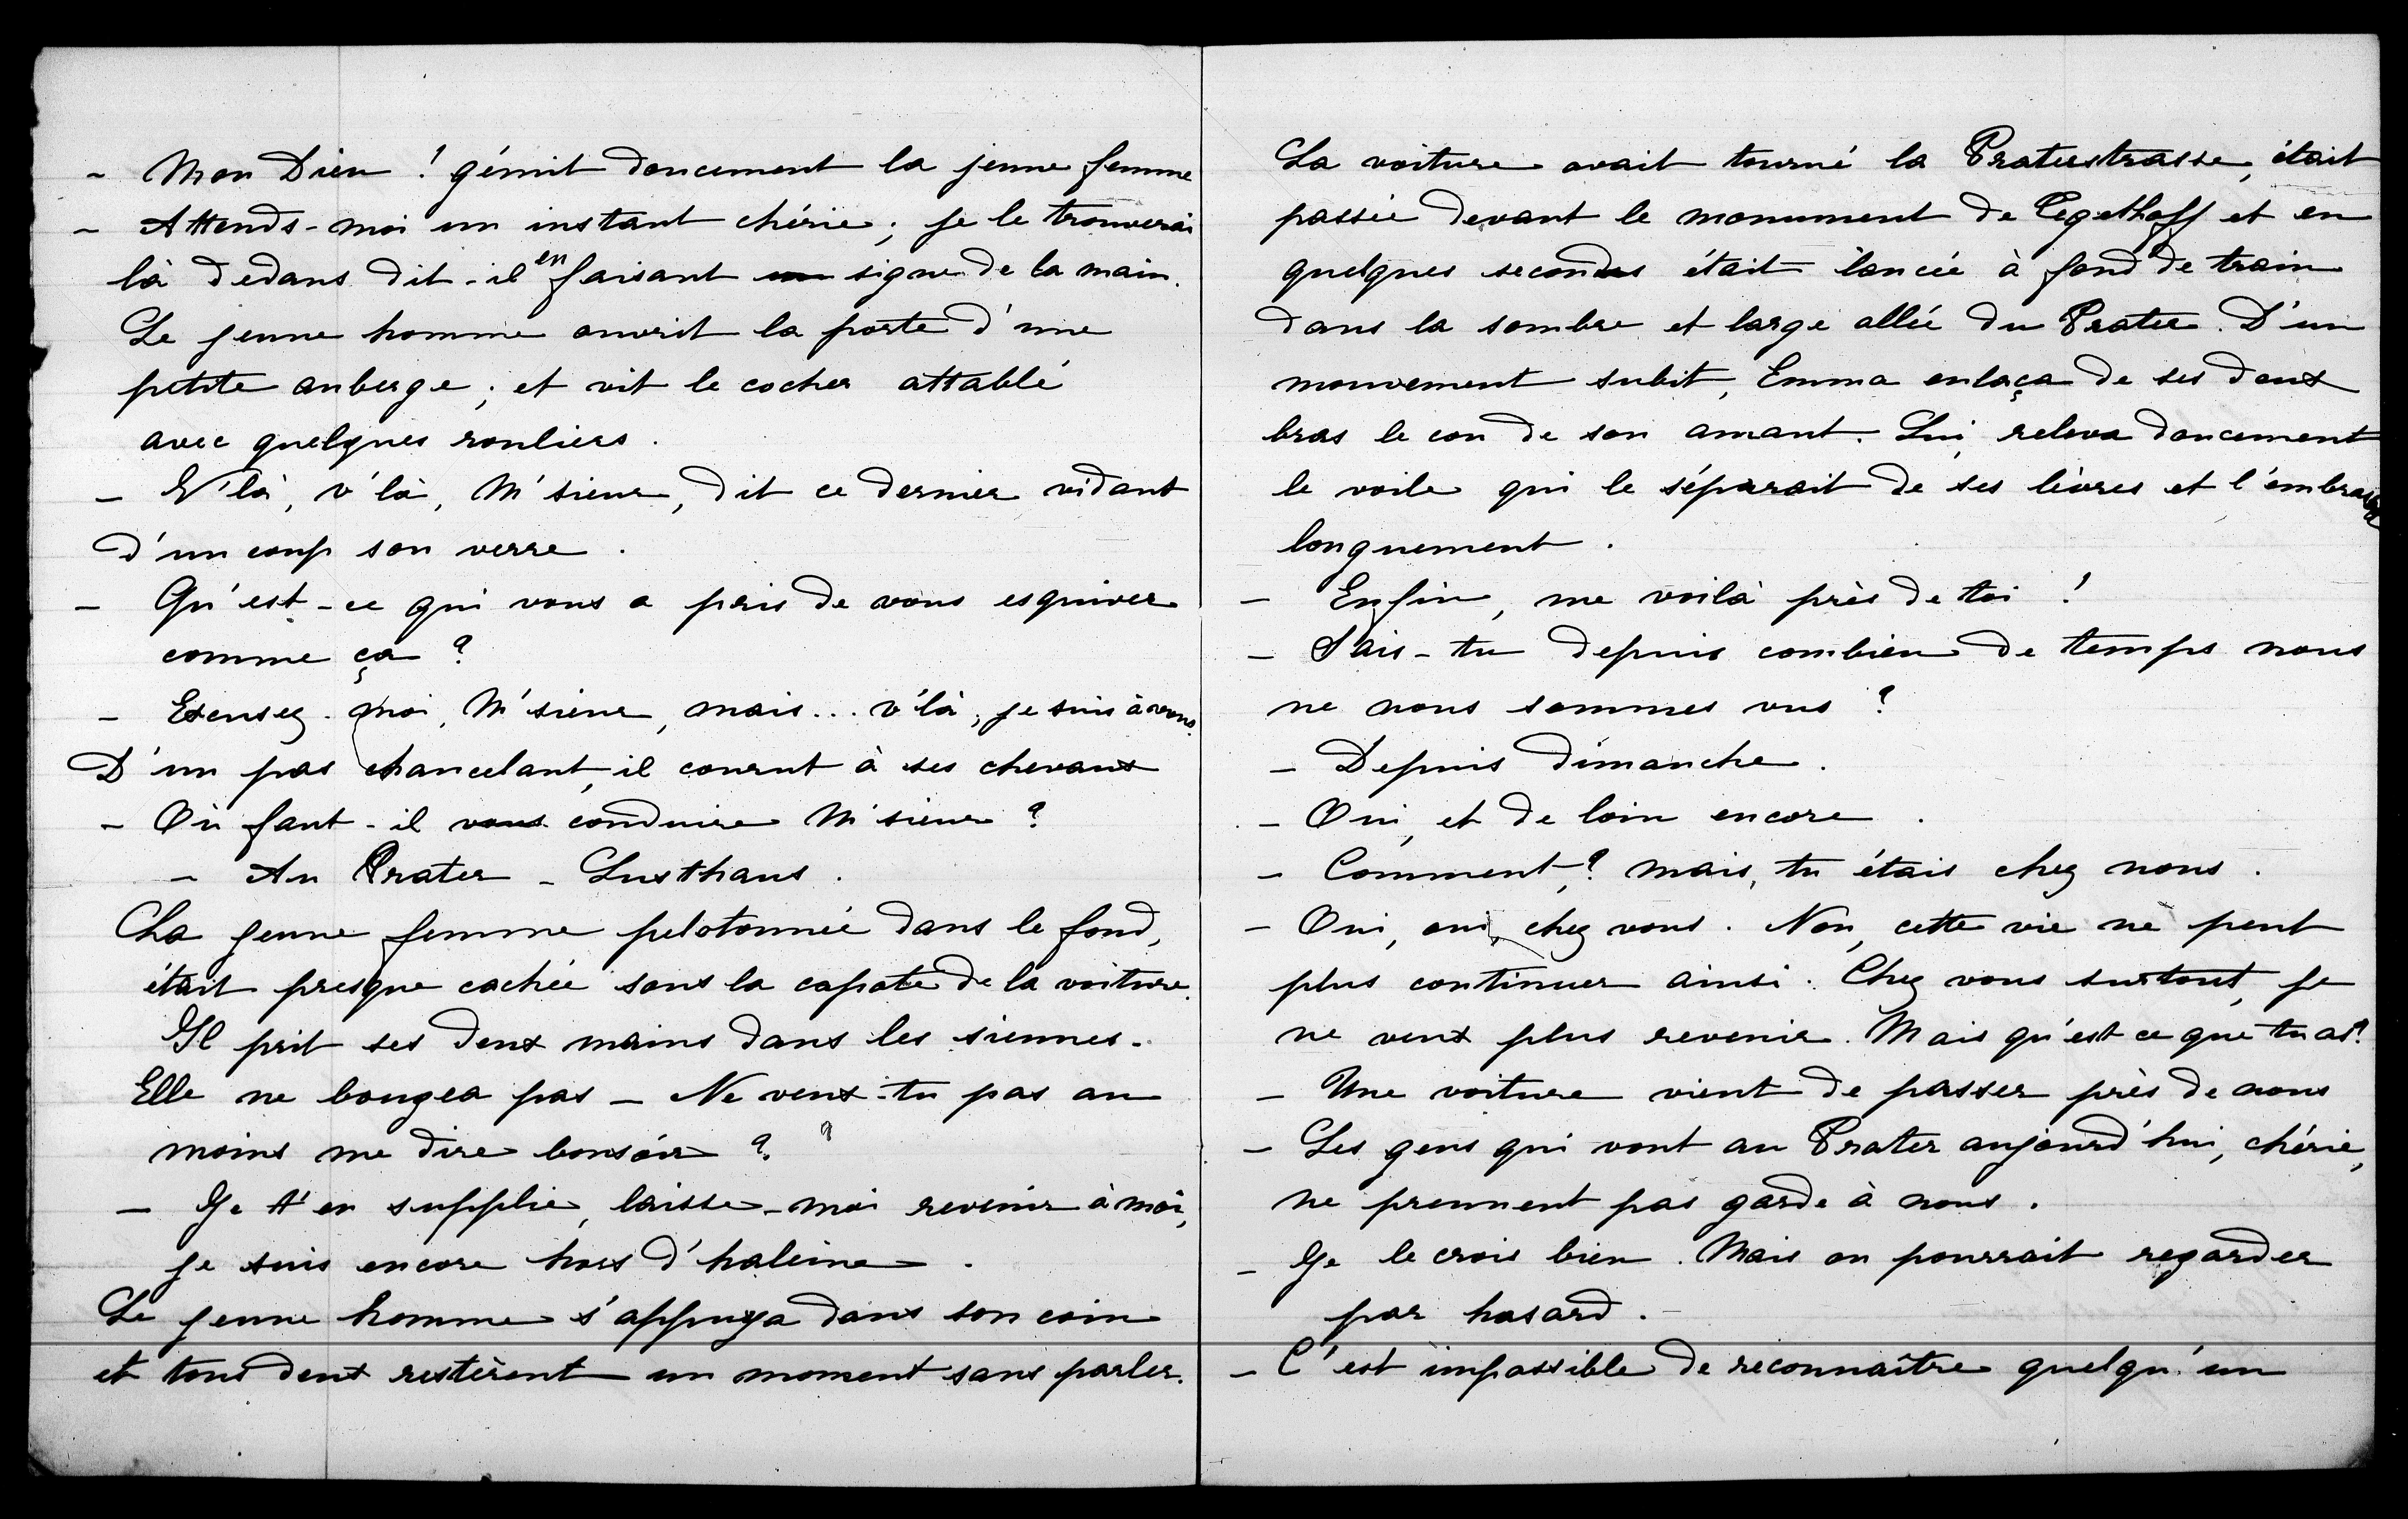 - Mon Dieu ! gémit doucement la jeune femme
- Attends-moi un instant chérie ; je le trouverai
là dedans dit-il en faisant un signe de la main.
Le jeune homme ouvrit la porte d'une
petite auberge ; et vit le cocher attablé
avec quelques rouliers.
- V'là, v'là, M'sieur, dit ce dernier vidant
d'un coup son verre.
- Qu'est-ce qui vous a pris de vous esquiver
comme ça ?
- Excusez-moi, M'sieur, mais... v'là, je suis à vous.
D'un pas chancelant, il courut à ses chevaux
- Où faut-il vous conduire M'sieur ?
- Au Prater - Lusthaus.
La jeune femme pelotonnée dans le fond,
était presque cachée sous la capote de la voiture.
Il prit ses deux mains dans les siennes.
Elle ne bougea pas - Ne veux-tu pas au
moins me dire bonsoir ? ?
- Je t'en supplie, laisse-moi revenir à moi,
je suis encore hors d'haleine.
Le jeune homme s'appuya dans son coin
et tous deux restèrent un moment sans parler.
La voiture avait tourné la Praterstrasse, était
passée devant le monument de Tegethoff et en
quelques secondes était lancée à fond de train
dans la sombre et large allée du Prater. D'un
mouvement subit, Emma enlaça de ses deux
bras le cou de son amant. Lui, releva doucement
le voile qui le séparait de ses lèvres et l'embrassa
longuement.
- Enfin, me voilà près de toi !
- Sais-tu depuis combien de temps nous
ne nous sommes vus ?
- Depuis dimanche.
- Oui, et de loin encore.
- Comment,? mais, tu étais chez nous.
- Oui, oui, chez vous. Non, cette vie ne peut
plus continuer ainsi. Chez vous surtout, je
ne veux plus revenir. Mais qu'est ce que tu as ?
- Une voiture vient de passer près de nous
- Les gens qui vont au Prater aujourd'hui, chérie,
ne prennent pas garde à nous.
- Je le crois bien. Mais on pourrait regarder
par hasard.
- C'est impossible de reconnaître quelqu'un